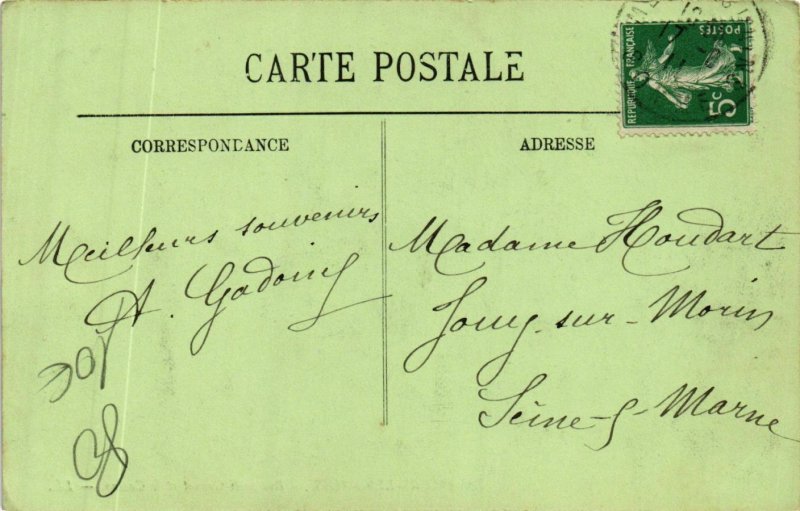 CARTE POSTALE
CORRESPONDANCE
Meilleurs souvenirs
A. Gadoing
ADRESSE
Madame Houdart
Jouy-sur-Morin
Seine-&-Marne
REPUBLIQUE FRANÇAISE
POSTES
5c